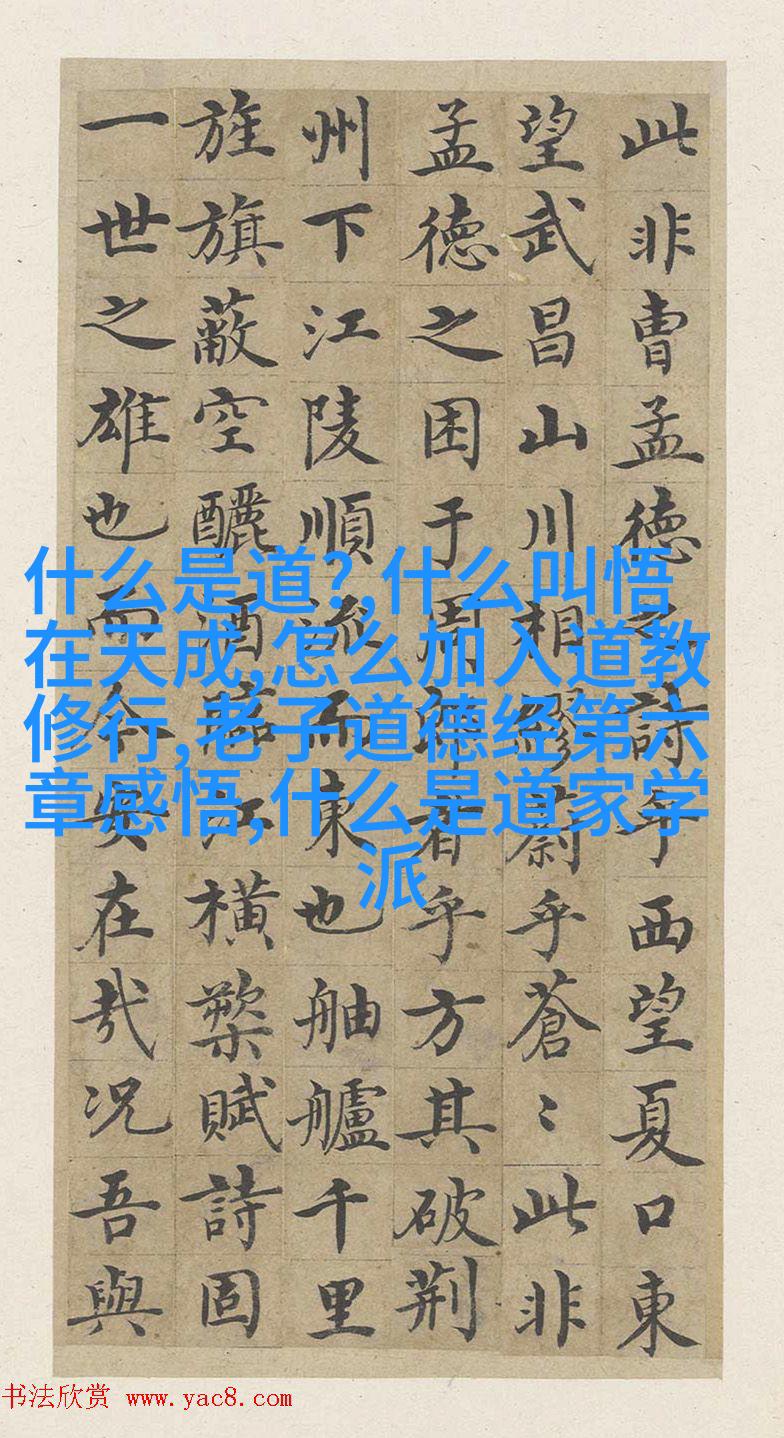 此非曹孟德之詩乎西望夏口東
望武昌山川相繆蔚乎蒼〻此非
孟德之困于周郎者乎方其破荆
州下江陵順流而東也舳艫千里
旌旗蔽空釃酒臨江橫槊賦詩固
一世之雄也而今安在哉況吾與
什么是道?,什么叫悟
在天成,怎么加入道教
修行,老子道德经第六
章感悟,什么是道家学
派
书法欣赏 www.yac8.com